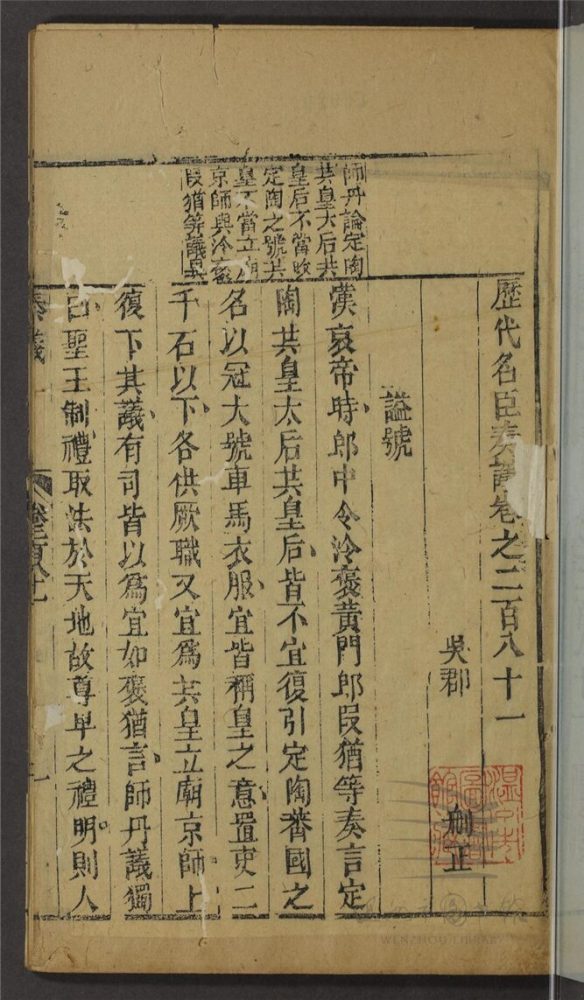 歷代名臣奏議卷之二百八十一
吳郡 刪正
謚號
師丹論定陶
共皇太后共
皇后不當改
定陶之號共
皇不當立廟
京師與泠褒
段猶等議異
漢哀帝時郎中令泠褒黃門郎段猶等奏言定
陶共皇太后共皇后皆不宜復引定陶蕃國之
名以冠大號車馬衣服宜皆稱皇之意置吏二
千石以下各供厥職又宜爲共皇立廟京師上
復下其議有司皆以爲宜如褒猶言師丹議獨
曰聖王制禮取法於天地故尊卑之禮明則人
奏議 卷二百八十一 一
WENZHOU LIBRARY